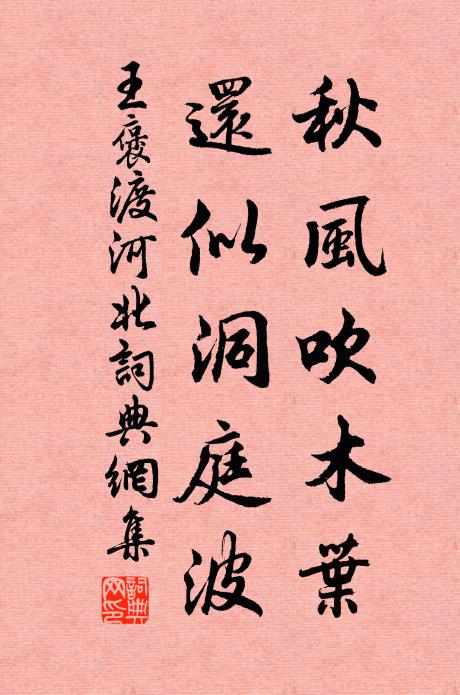 秋風吹木葉
還似洞庭波
王褒渡河北詞典網集
詞典網印